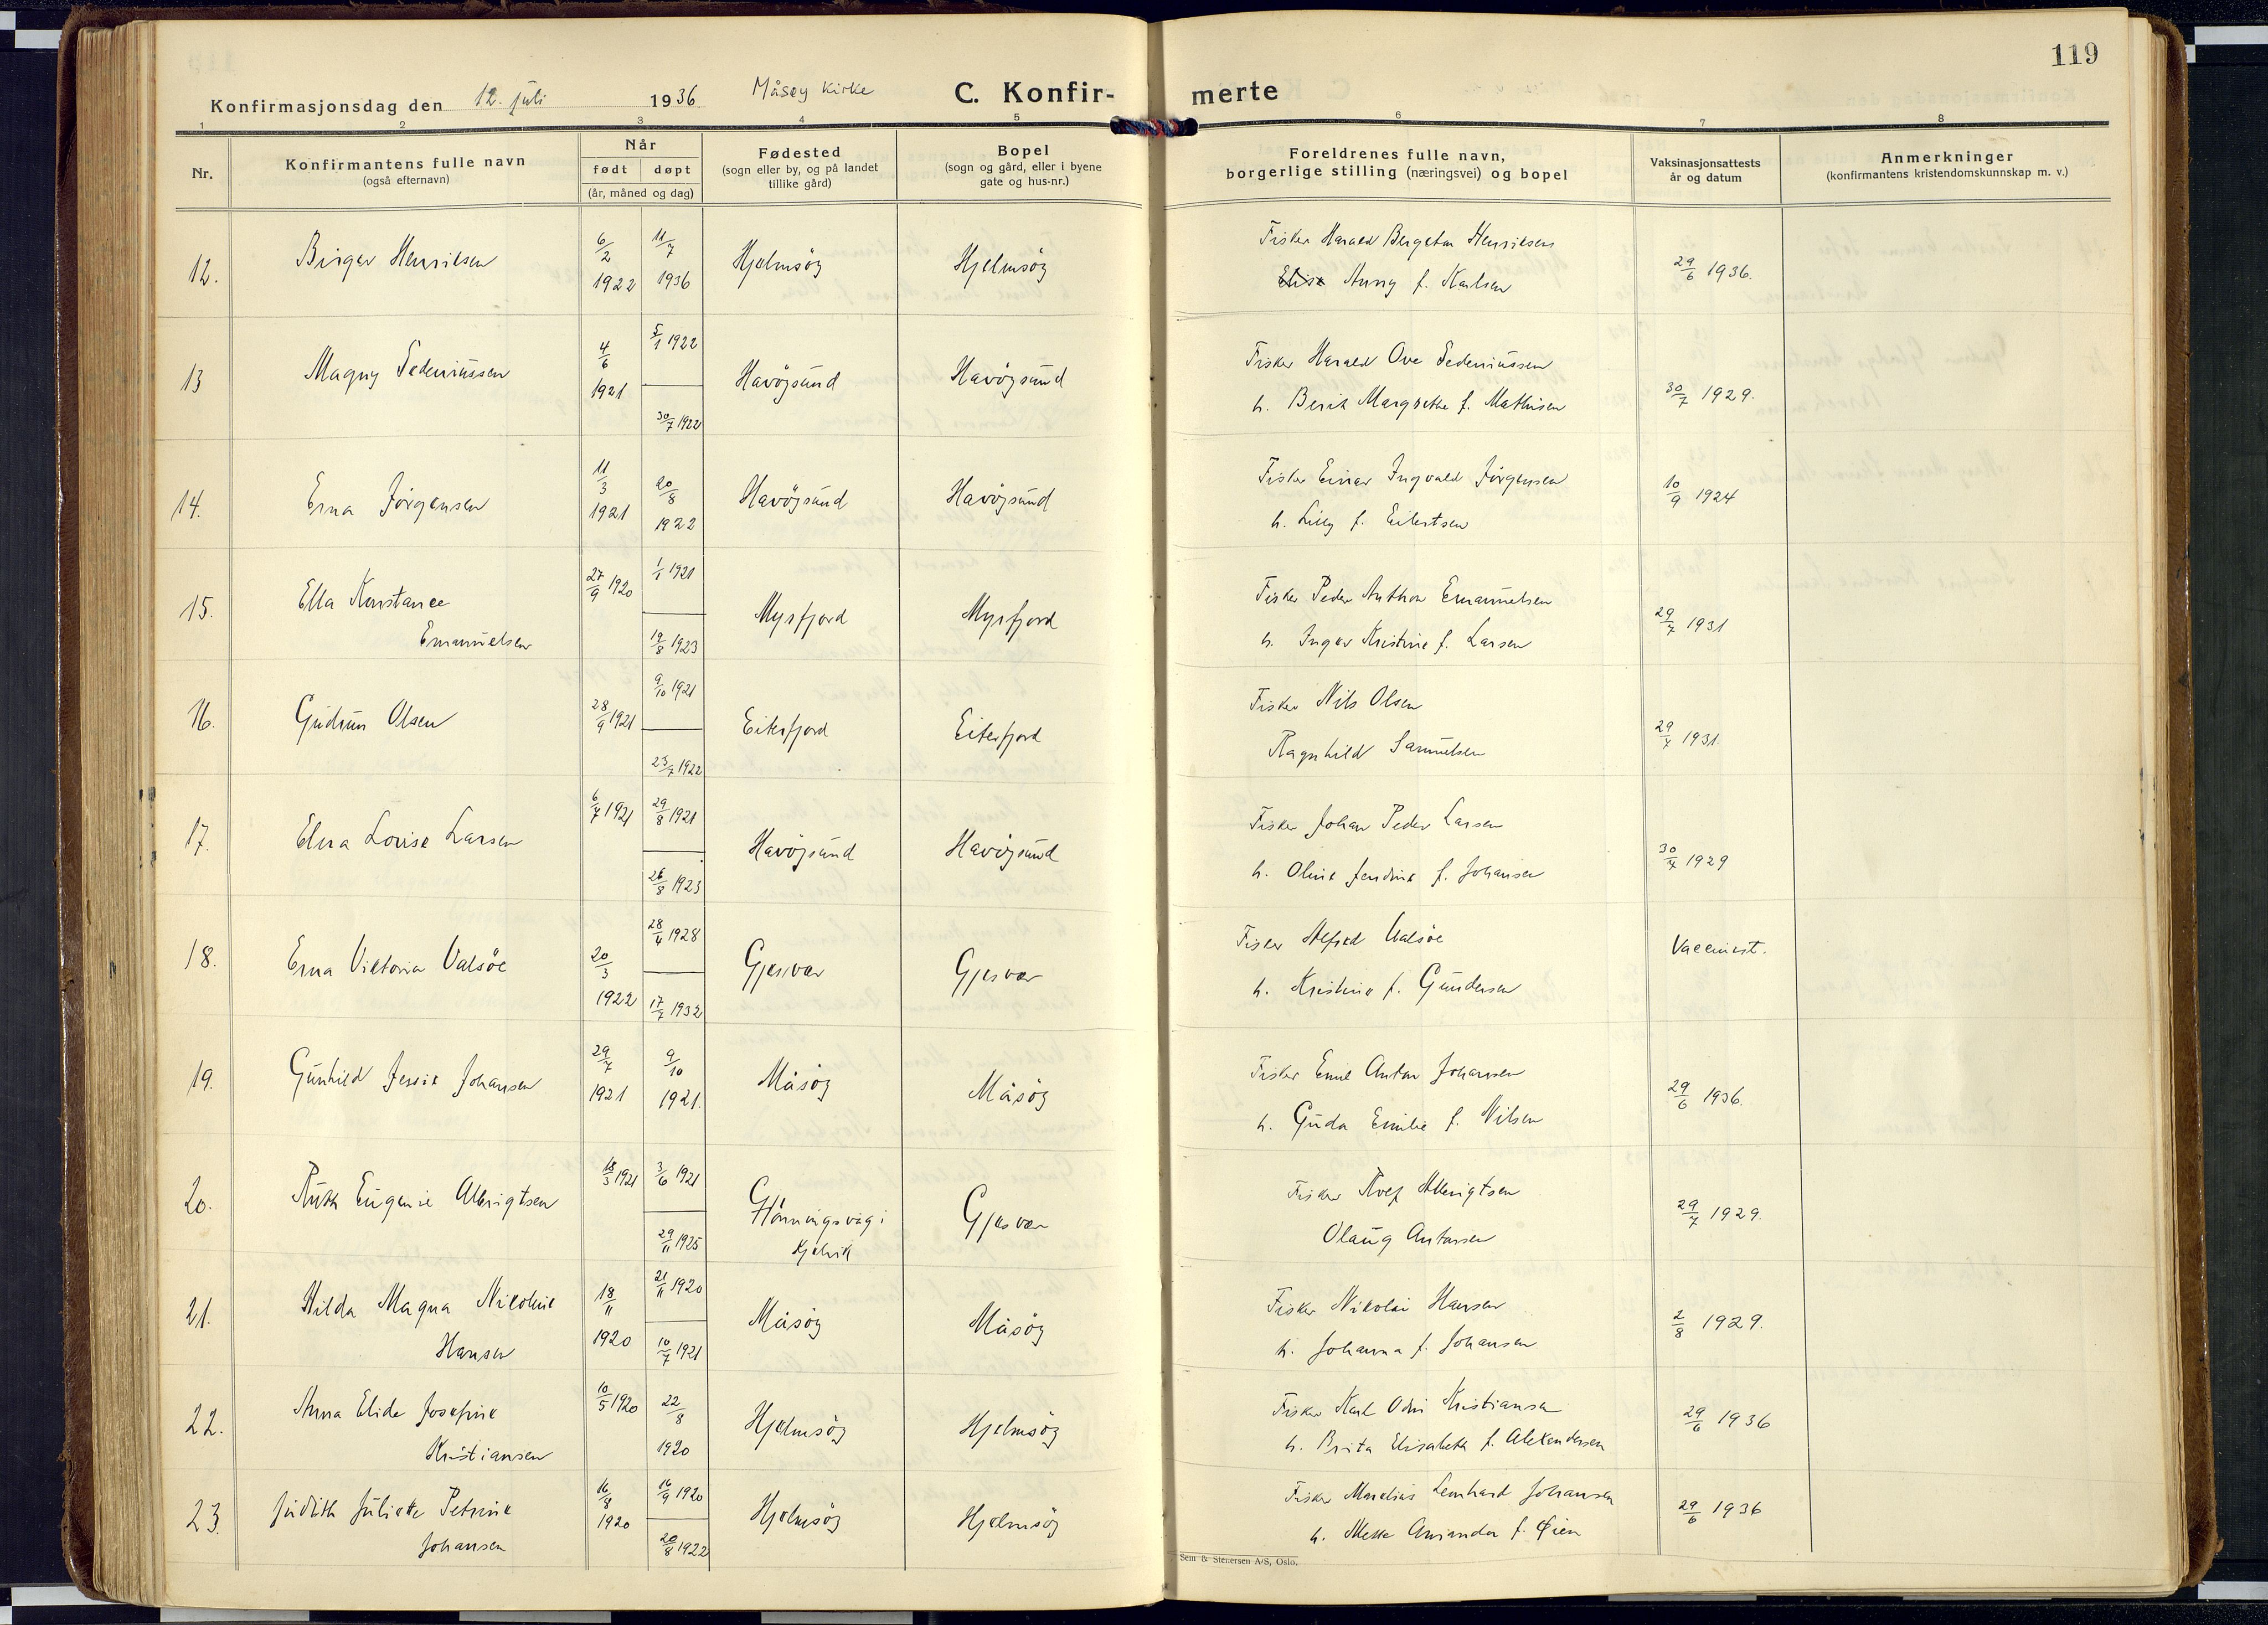 119
Konfirmasjonsdag den 12. juli 1936. Måsøy Kirke C. Konfir- merte
1 2 3 4 5 6 7 8
Nr. Konfirmantens fulle navn (også efternavn) Når født døpt (år, måned og dag) Fødested (sogn eller by, og på landet tillike gård) Bopel (sogn og gård, eller i byene gate og hus-nr.) Foreldrenes fulle navn, borgerlige stilling (næringsvei) og bopel Vaksinasjonsattests år og datum Anmerkninger (konfirmantens kristendomskunnskap m. v.)
12. Birger Henriksen 6/2 1922 11/7 1936 Hjelmsöy Hjelmsöy Fisker Harald Bergeton Henriksen 29/6 1936.
Anny f. Karlsen
13 Magny Sedeniussen 4/6 1921 5/1 1922 30/7 1922 Havöysund Havöysund Fisker Harald Ove Sedeniussen 30/7 1929.
h. Berit Margrethe f. Mathisen
14. Erna Jörgensen 11/3 1921 20/8 1922 Havöysund Havöysund Fisker Einar Ingvald Jörgensen 10/9 1924
h. Lilly f. Eilertsen
15. Ella Konstance Emanuelsen 27/9 1920 1/1 1921 19/8 1923 Myrfjord Myrfjord Fisker Peder Anthon Emanuelsen 29/7 1931
h. Inger Kristine f. Larsen
16. Gudrun Olsen 28/9 1921 9/10 1921 23/7 1922 Eiterfjord Eiterfjord Fisker Nils Olsen 29/7 1931.
Ragnhild Samuelsen
17. Elna Louise Larsen 6/7 1921 29/8 1921 26/8 1923 Havöysund Havöysund Fisker Johan Peder Larsen 30/7 1929
h. Oline Jendine f. Johansen
18. Erna Viktoria Valsöe 20/3 1922 28/4 1928 17/7 1932 Gjesvær Gjesvær Fisker Alfred Valsöe Vaccinert.
h. Kristine f. Gundersen
19. Gunhild Jessie Johansen 29/7 1921 9/10 1921. Måsöy Måsöy Fisker Emil Anton Johansen 29/6 1936.
h. Guda Emilie f. Nilsen
20. Ruth Eugenie Albrigtsen 18/3 1921 3/6 1921 29/11 1925 Honningsvåg i Kjelvik Gjesvær Fisker Rolf Albrigtsen 29/7 1929.
Olaug Antonsen
21. Hilda Magna Nikoline Hansen 18/11 1920 21/11 1920 10/7 1921 Måsöy Måsöy Fisker Nikolai Hansen 2/8 1929.
h. Johanna f. Johansen
22. Anna Elide Josefine Kristiansen 10/5 1920 22/8 1920 Hjelmsöy Hjelmsöy Fisker Karl Odin Kristiansen 29/6 1936
h. Brita Elisabeth f. Alexandersen
23. Judith Juliette Petrine Johansen 16/8 1920 16/9 1920 20/8 1922 Hjelmsöy Hjelmsöy Fisker Marelius Lenhard Johansen 29/6 1936
h. Mette Amanda f. Øien
Sem & Stenersen A/S, Oslo.